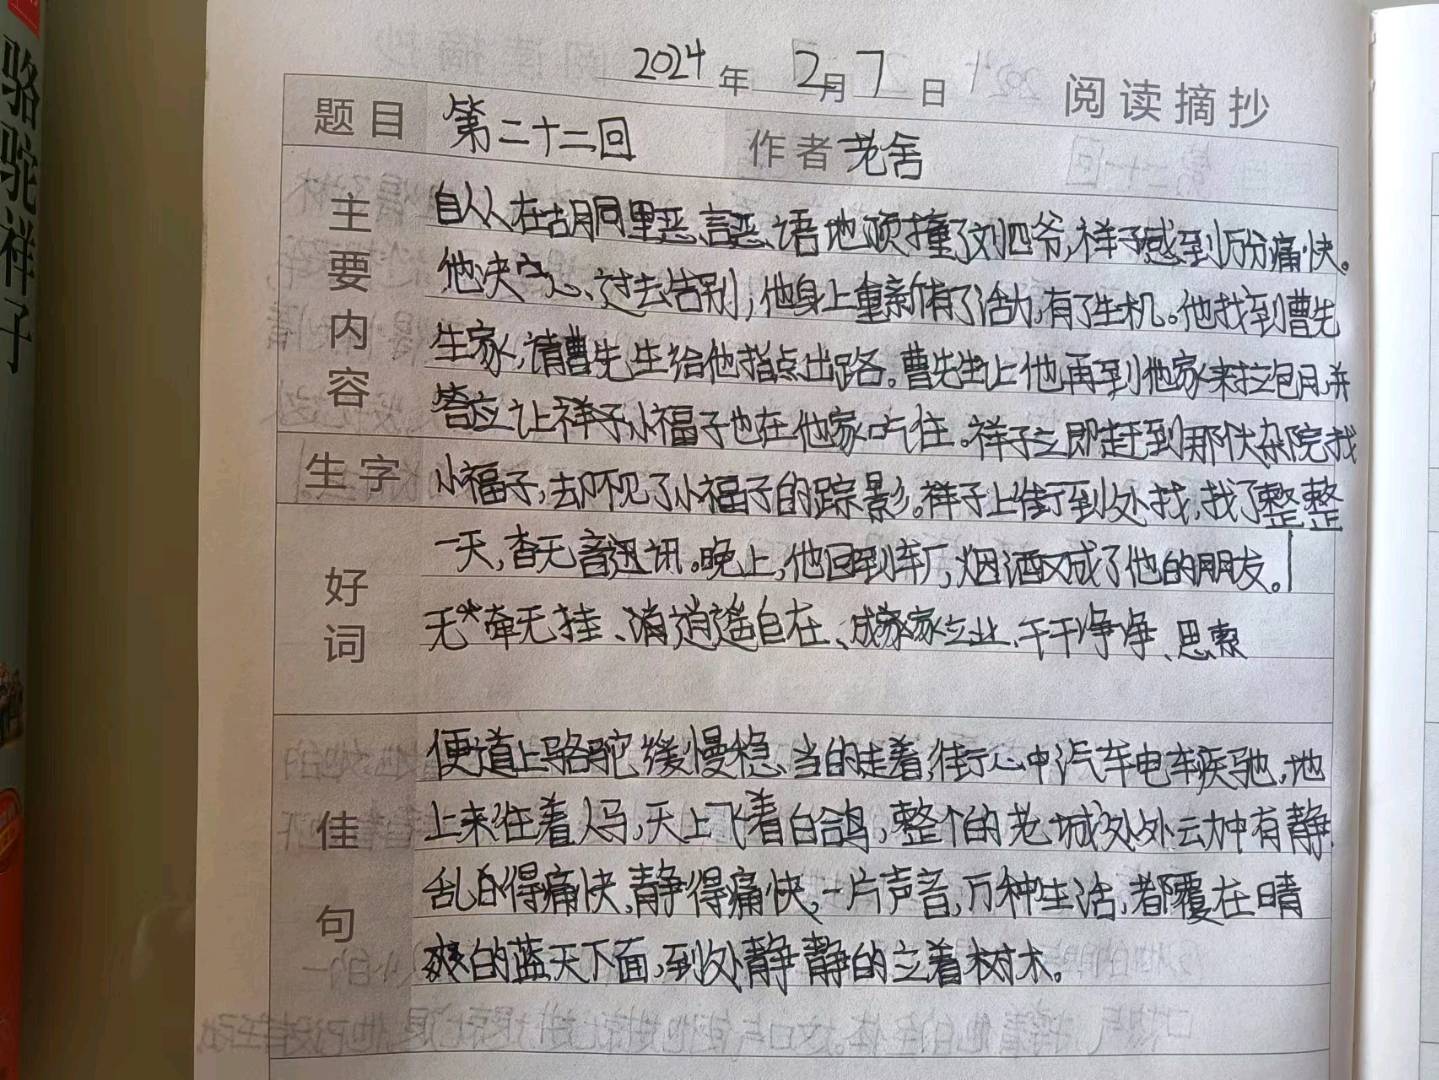 骆驼祥子
2024年 2月7日 阅读摘抄
题目 第二十二回 作者 老舍
主要内容
自从在胡同里恶言恶语地顶撞了刘四爷,祥子感到万分痛快。
他决心、过去告别,他身上重新有了活力,有了生机。他找到曹先
生家,请曹先生给他指点出路。曹先生让他再到他家来拉包月,并
答应让祥子小福子也在他家吃住。祥子立即赶到那大杂院找
生字
小福子,却不见了小福子的踪影。祥子上街到处找,找了整整
一天,杳无音迅讯。晚上,他回到车厂,烟酒又成了他的朋友。
好词
无牵无挂、逍遥自在、成家立业、干干净净、思索
佳句
便道上骆驼缓慢稳当的走着,街心中汽车电车疾驰,地
上来往着人马,天上飞着白鸽,整个的老城处处动中有静,
乱的得痛快,静得痛快,一片声音,万种生活,都覆在晴
爽的蓝天下面,到处静静的立着树木。